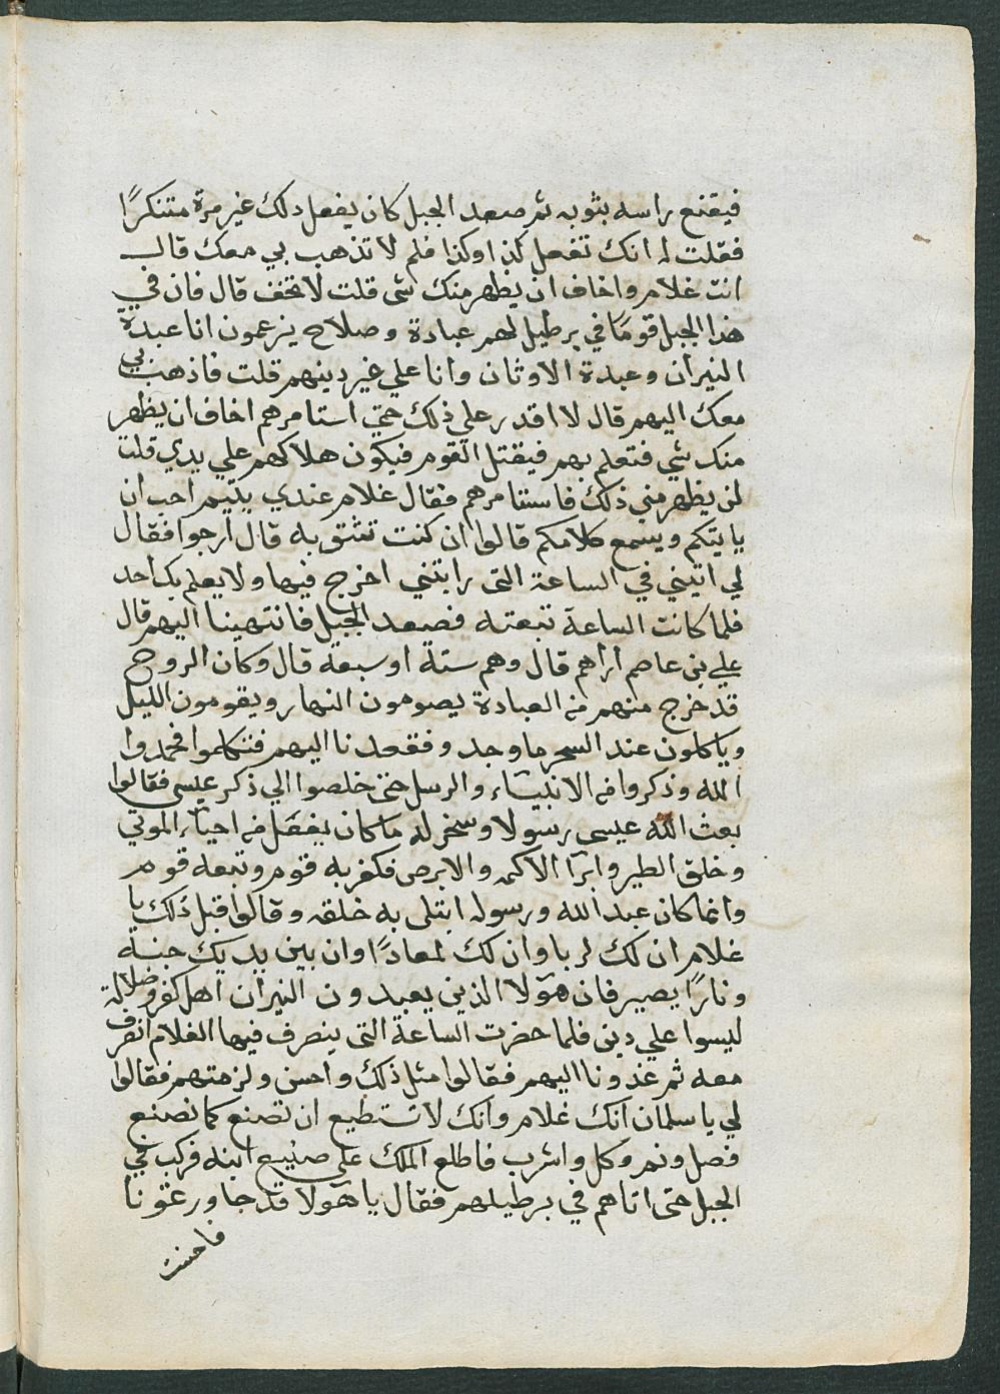 فيقنع راسه بثوبه ثم صعد الجبل كان يفعل دلك غير مرة متنكرًا
فقلت له انك تفعل كذا وكذا فلم لا تذهب بي معك قال
انت غلام واخاف ان يظهر منك شى قلت لا تخف قال فان في
هذا الجبل قومًا في برطيل لهم عبادة وصلاح يزعمون انا عبدة
النيران وعبدة الاوثان وانا علي غير دينهم قلت فاذهب بي
معك اليهم قال لا اقدر علي ذلك حتي استامرهم اخاف ان يظهر
منك شي فتعلم بهم فيقتل القوم فيكون هلاكهم علي يدي قلت
لن يظهر مني ذلك فاستامرهم فقال غلام عندي يتيم احب ان
ياتيكم ويسمع كلامكم قالوا ان كنت تثق به قال ارجوا فقال
لي اتيني في الساعة التى رايتني اخرج فيها ولا يعلم بك احد
فلما كانت الساعة تبعته فصعد الجبل فانتهينا اليهم قال
علي بن عاصم اراهم قال وهم ستة او سبعة قال وكان الروح
قد خرج منهم من العبادة يصومون النهار ويقومون الليل
وياكلون عند السحر ما وجدو فقعدنا اليهم فتكلموا فحمدوا
الله وذكروا من الانبياء والرسل حتى خلصوا الي ذكر عيسى فقالوا
بعث الله عيسى رسولا وسخر له ما كان يفعل من احياء الموتي
وخلق الطير وابرآ الاكمه والابرص فكفر به قوم وتبعه قوم
وانما كان عبد الله ورسوله ابتلى به خلقه وقالوا قبل ذلك يا
غلام ان لك لربا وان لك لمعادًا وان بين يديك جنة
ونارًا يصير فان هولا الذين يعبدون النيران اهل كفر وضلالة
ليسوا علي دين فلما حضرت الساعة التى ينصرف فيها الغلام انصرف
معه ثم غدونا اليهم فقالوا مثل ذلك واحسن ولزمتهم فقالوا
لي يا سلمان انك غلام وانك لا تستطيع ان تصنع كما نصنع
فصل ونم وكل واشرب فاطلع الملك على صنيع ابنه فركب في
الجبل حتى اتاهم في برطيلهم فقال يا هولا قد جاورتمونا
فاحسنت